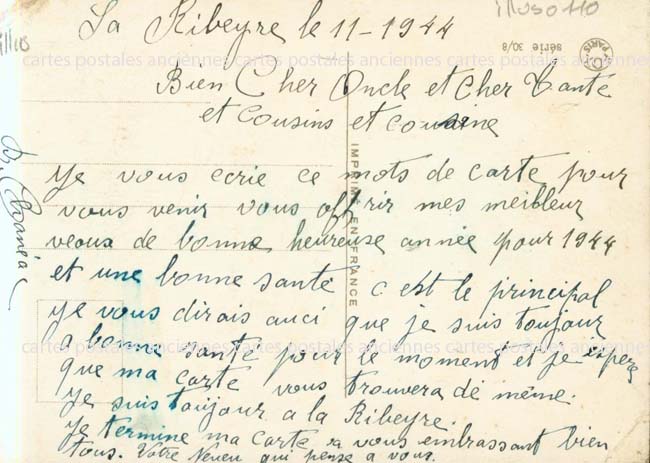 illus0110
La Ribeyre le 11-1944
série 30/8
PARIS
cartes postales anciennes cartes postales anciennes cartes postales anciennes
Bien Cher Oncle et Cher Tante
et cousins et cousine
IMPRIMÉ EN FRANCE
Je vous ecrie ce mots de carte pour
vous venir vous offrir mes meibleur
veaux de bonne heureuse année pour 1944
et une bonne santé c est le principal
je vous dirais auci que je suis toujour
a bonne santé pour le moment et je espere
cartes postales anciennes cartes postales anciennes cartes postales anciennes
que ma carte vous trouvera de même.
Je suis toujour a la Ribeyre.
Je termine ma carte en vous embrassant bien
tous. Votre Neveu qui pense a vous.